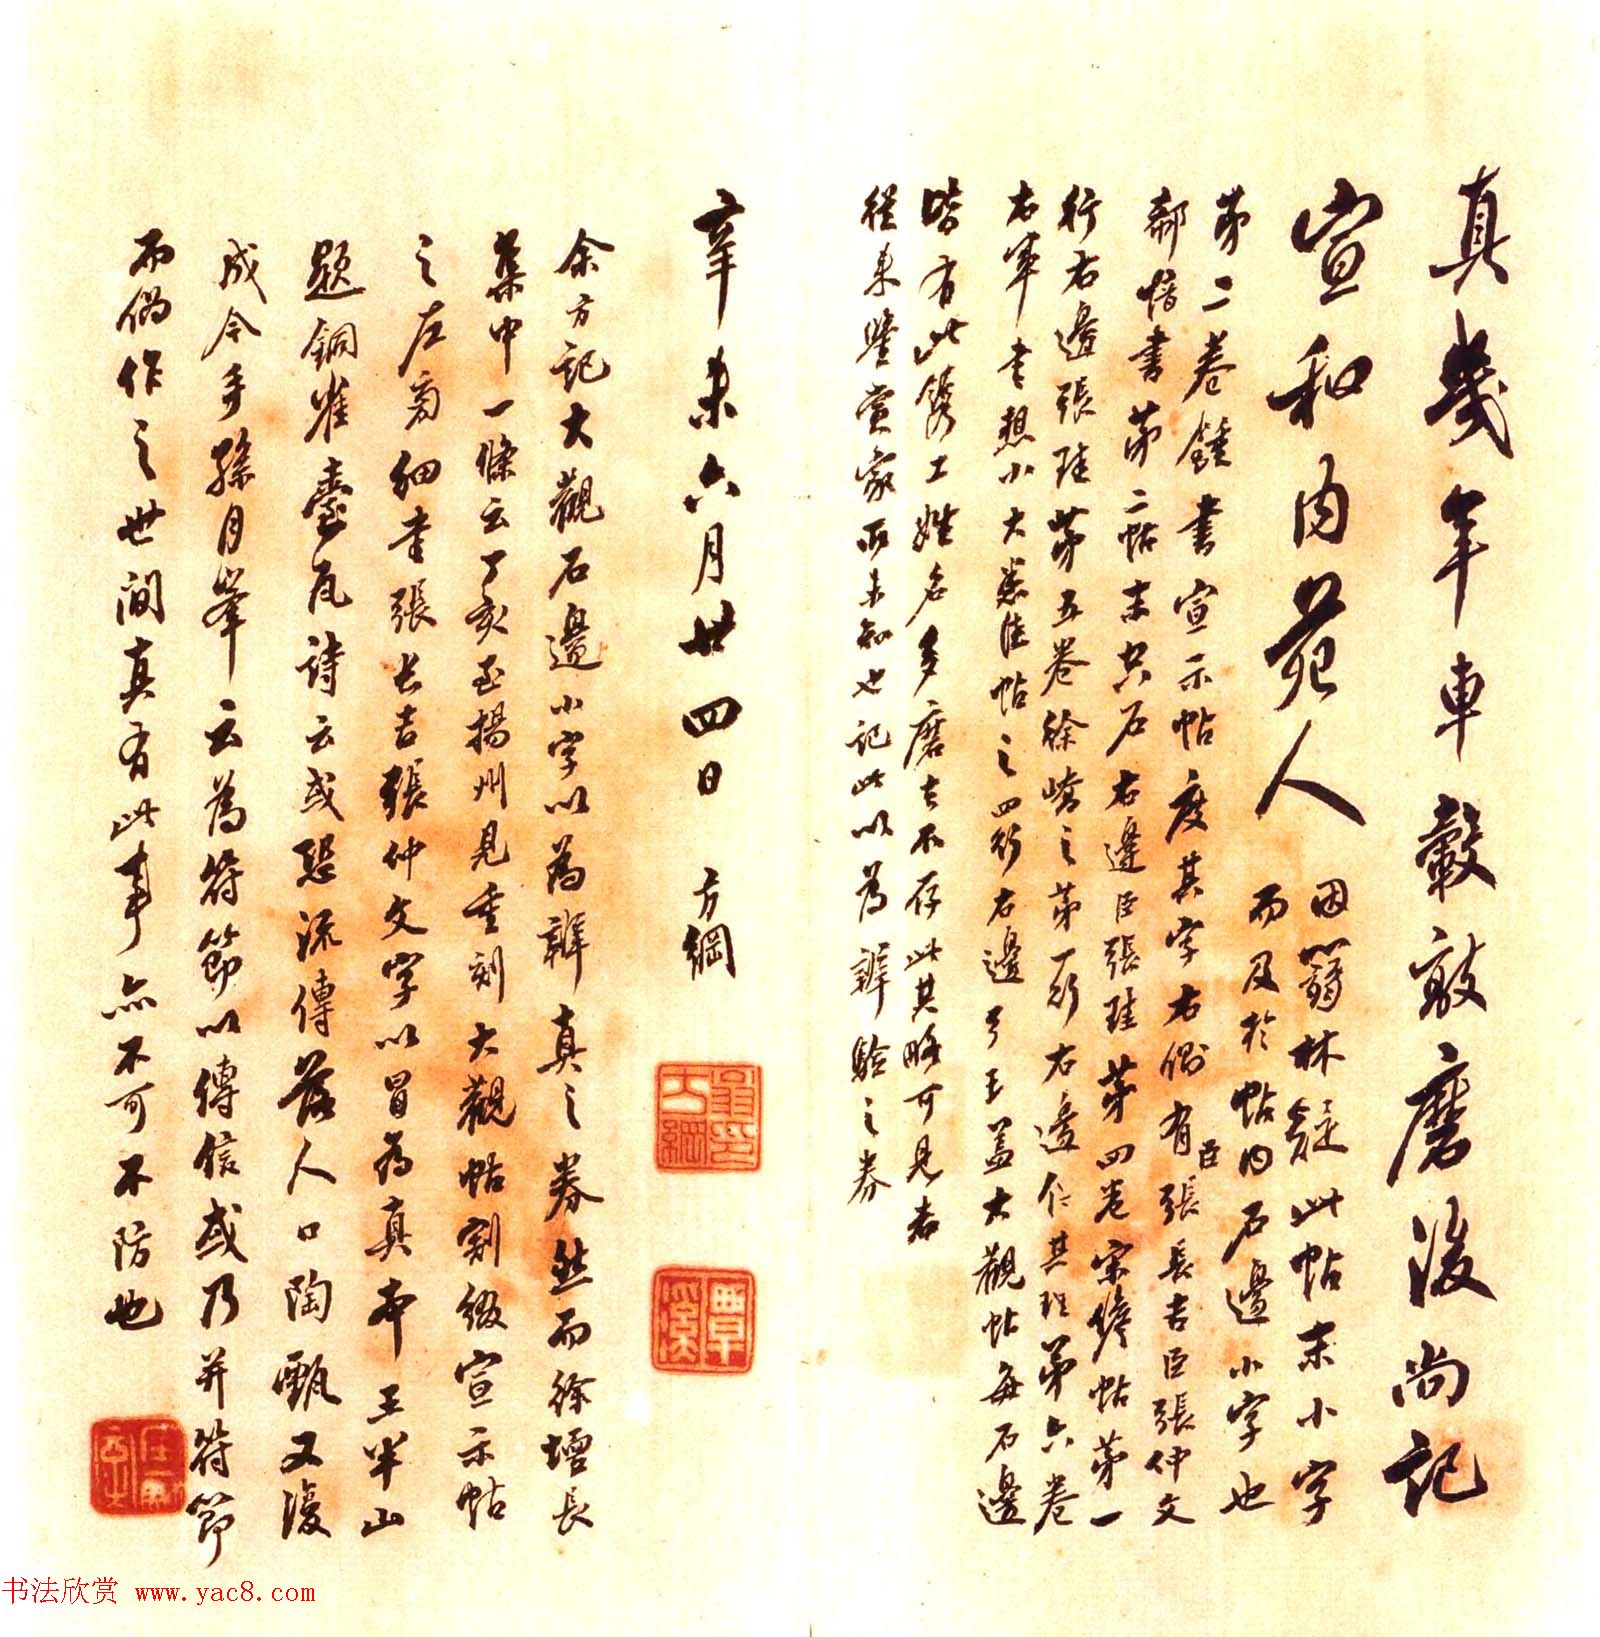 真幾年車轂敲磨後尚記
宣和內苑人
因蕭林疑此帖末小字
而及於帖內石邊小字也
第二卷鍾書宣示帖度其字右側有臣張長吉臣張仲文
郗愔書第二帖末只石右邊臣張珪第四卷宋儋帖第一
行右邊張珪第五卷徐嶠之第一行右邊仁其珵第六卷
右軍書想小大悉佳帖之四行右邊弓王蓋大觀帖每石邊
皆有此鐫工姓名多磨去不存此其略可見者
從來鑒賞家所未知也記此以為辨驗之券
辛未六月廿四日 方綱
翁方綱印
覃溪
余方記大觀石邊小字以為辨真之券然而徐壇長
集中一條云丁亥至揚州見重刻大觀帖割缀宣示帖
之左旁細書張長吉張仲文字以冒為真本王半山
題銅雀臺瓦詩云或恐流傳落人口陶甄又復
成今手孫月峯云為符節以傳信或乃并符節
而偽作之世間真有此事亦不可不防也
书法欣赏 www.yac8.com